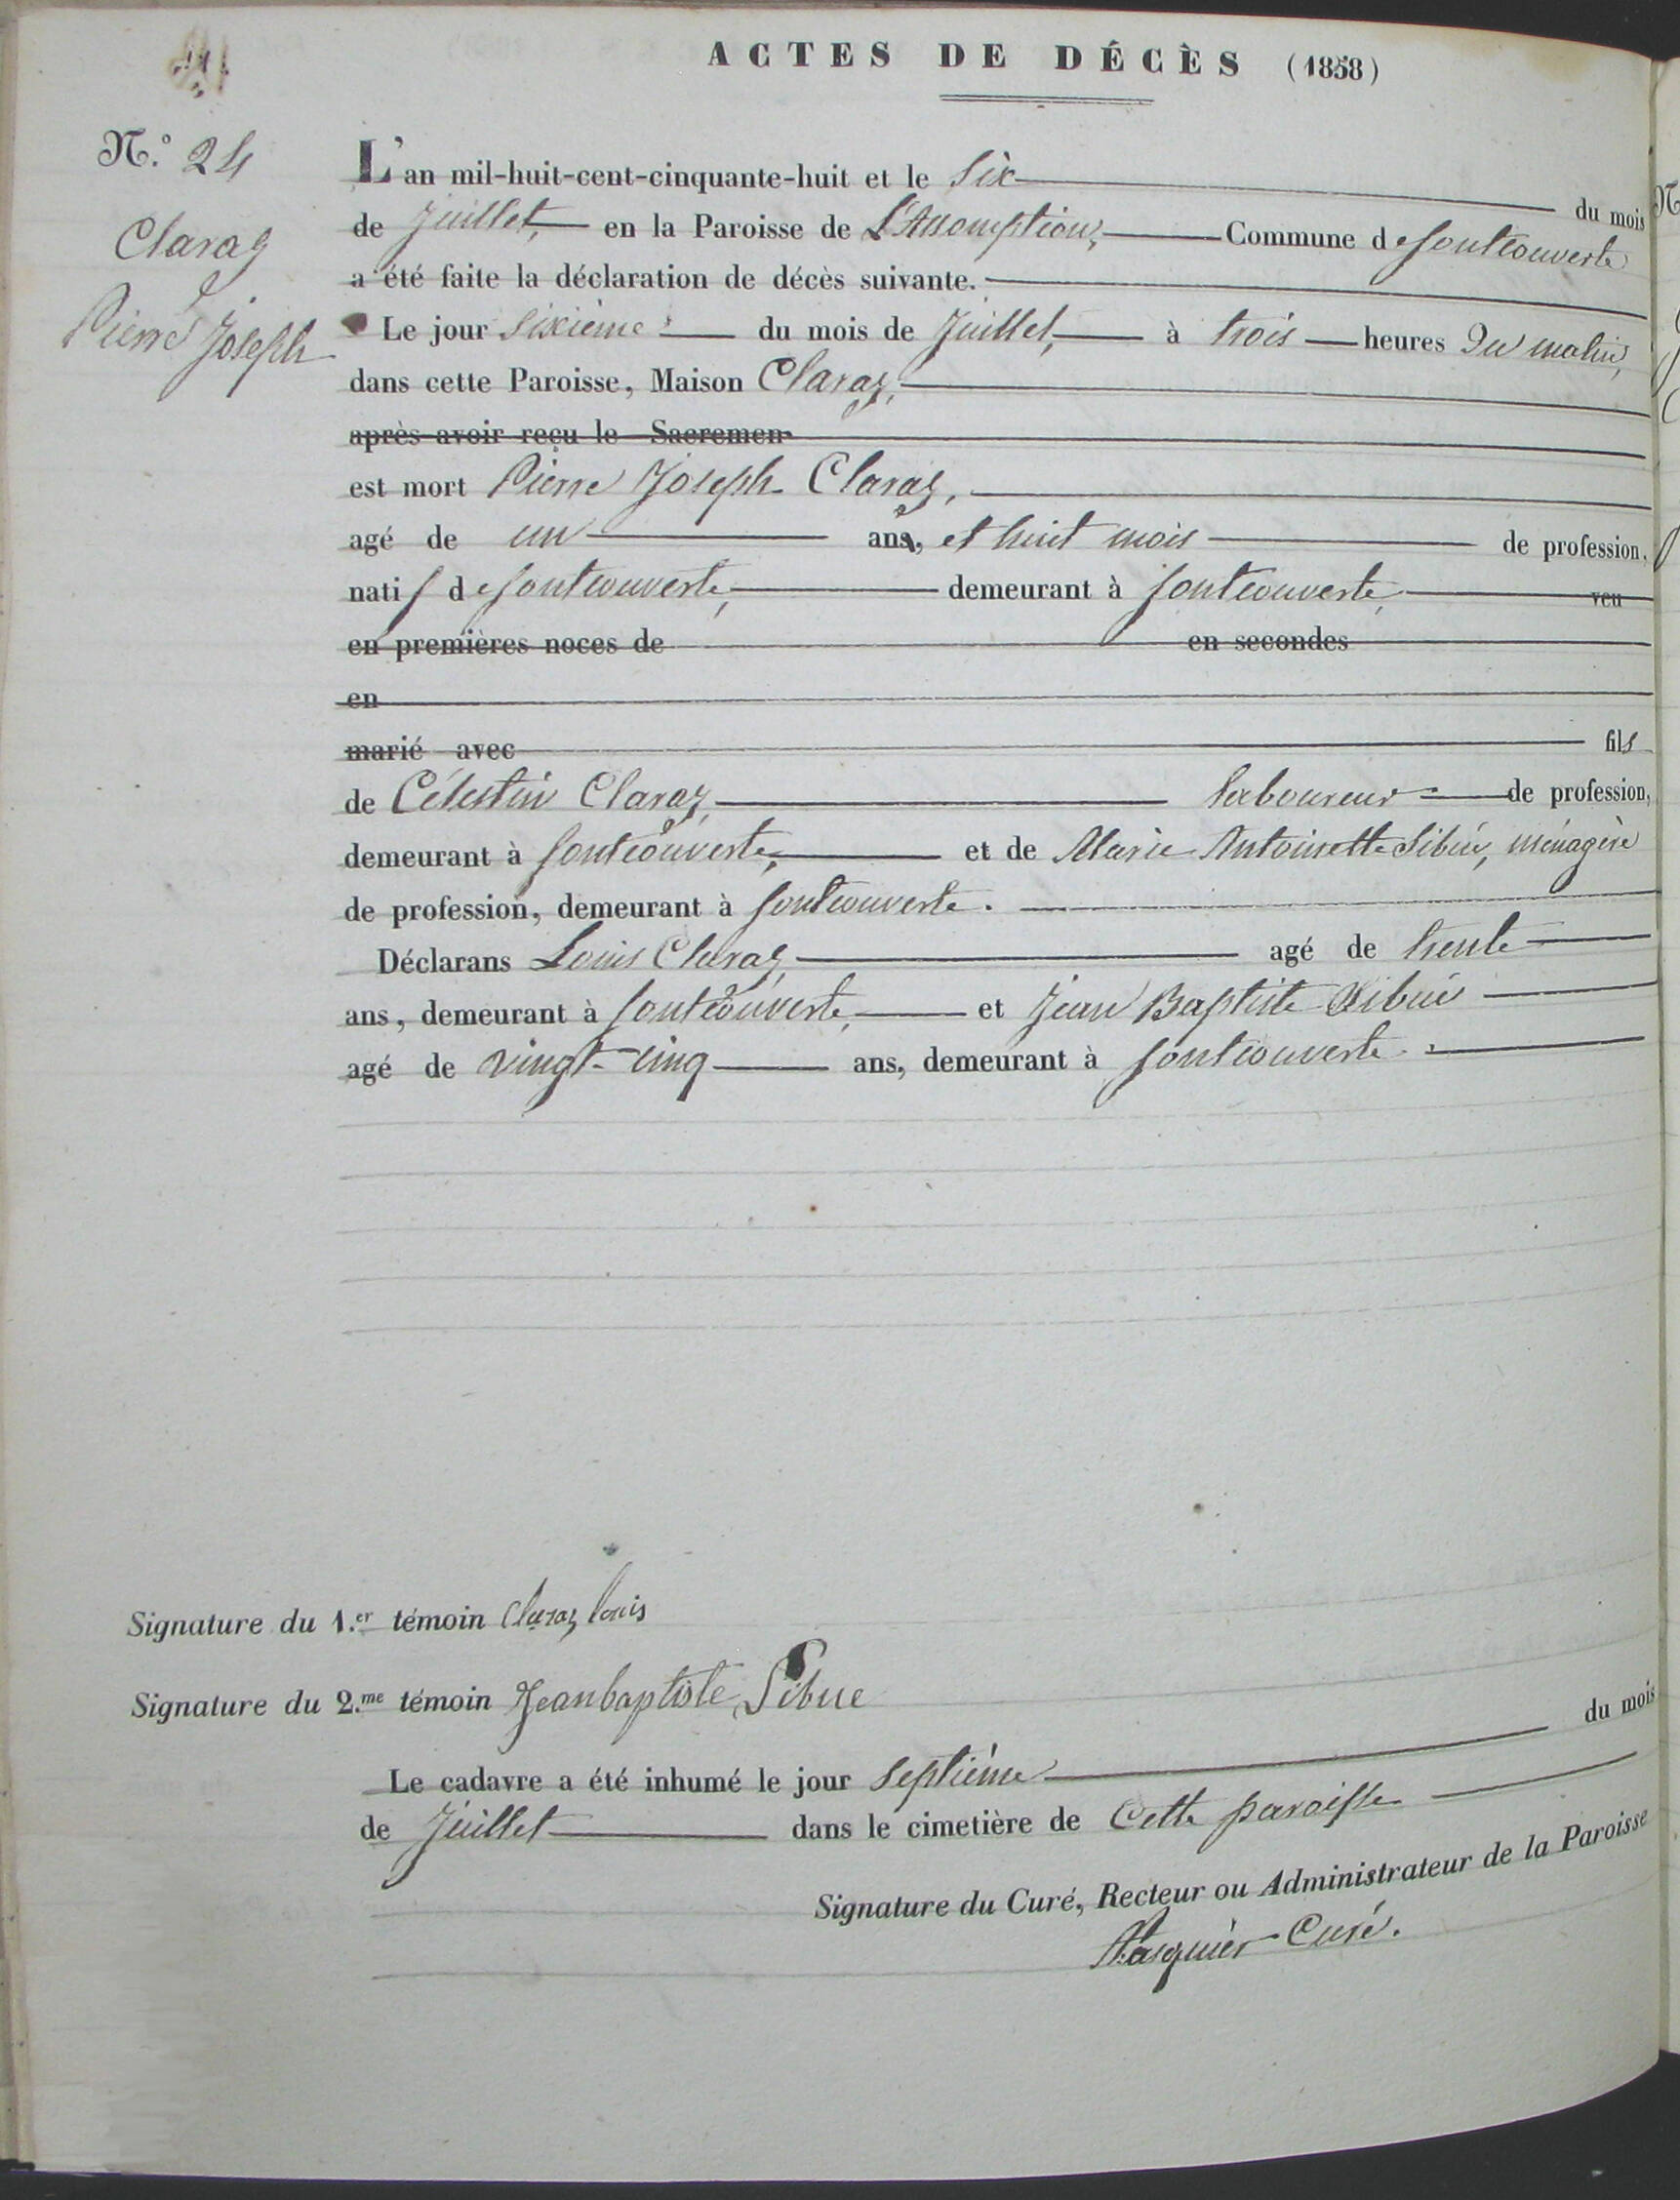 ACTES DE DÉCÈS (1858)
N.º 24
Claraz
Pierre Joseph
L'an mil-huit-cent-cinquante-huit et le Six du mois
de Juillet, en la Paroisse de L'Assomption, Commune de fontcouverte
a été faite la déclaration de décès suivante.
Le jour Sixième du mois de Juillet, à trois heures Du matin,
dans cette Paroisse, Maison Claraz,
après avoir reçu le Sacremen
est mort Pierre Joseph Claraz,
agé de un ans, et huit mois de profession,
natif de fontcouverte, demeurant à fontcouverte, veu
en premières noces de en secondes
en
marié avec fils
de Célestin Claraz, laboureur de profession,
demeurant à fontcouverte, et de Marie Antoinette Sibué, ménagère
de profession, demeurant à fontcouverte.
Déclarans Louis Claraz, agé de trente
ans, demeurant à fontcouverte, et Jean Baptiste Sibué
agé de vingt-cinq ans, demeurant à fontcouverte.
Signature du 1.er témoin Claraz louis
Signature du 2.me témoin Jeanbaptiste Sibue
Le cadavre a été inhumé le jour Septième du mois
de Juillet dans le cimetière de Cette paroisse
Signature du Curé, Recteur ou Administrateur de la Paroisse
Pasquier Curé.